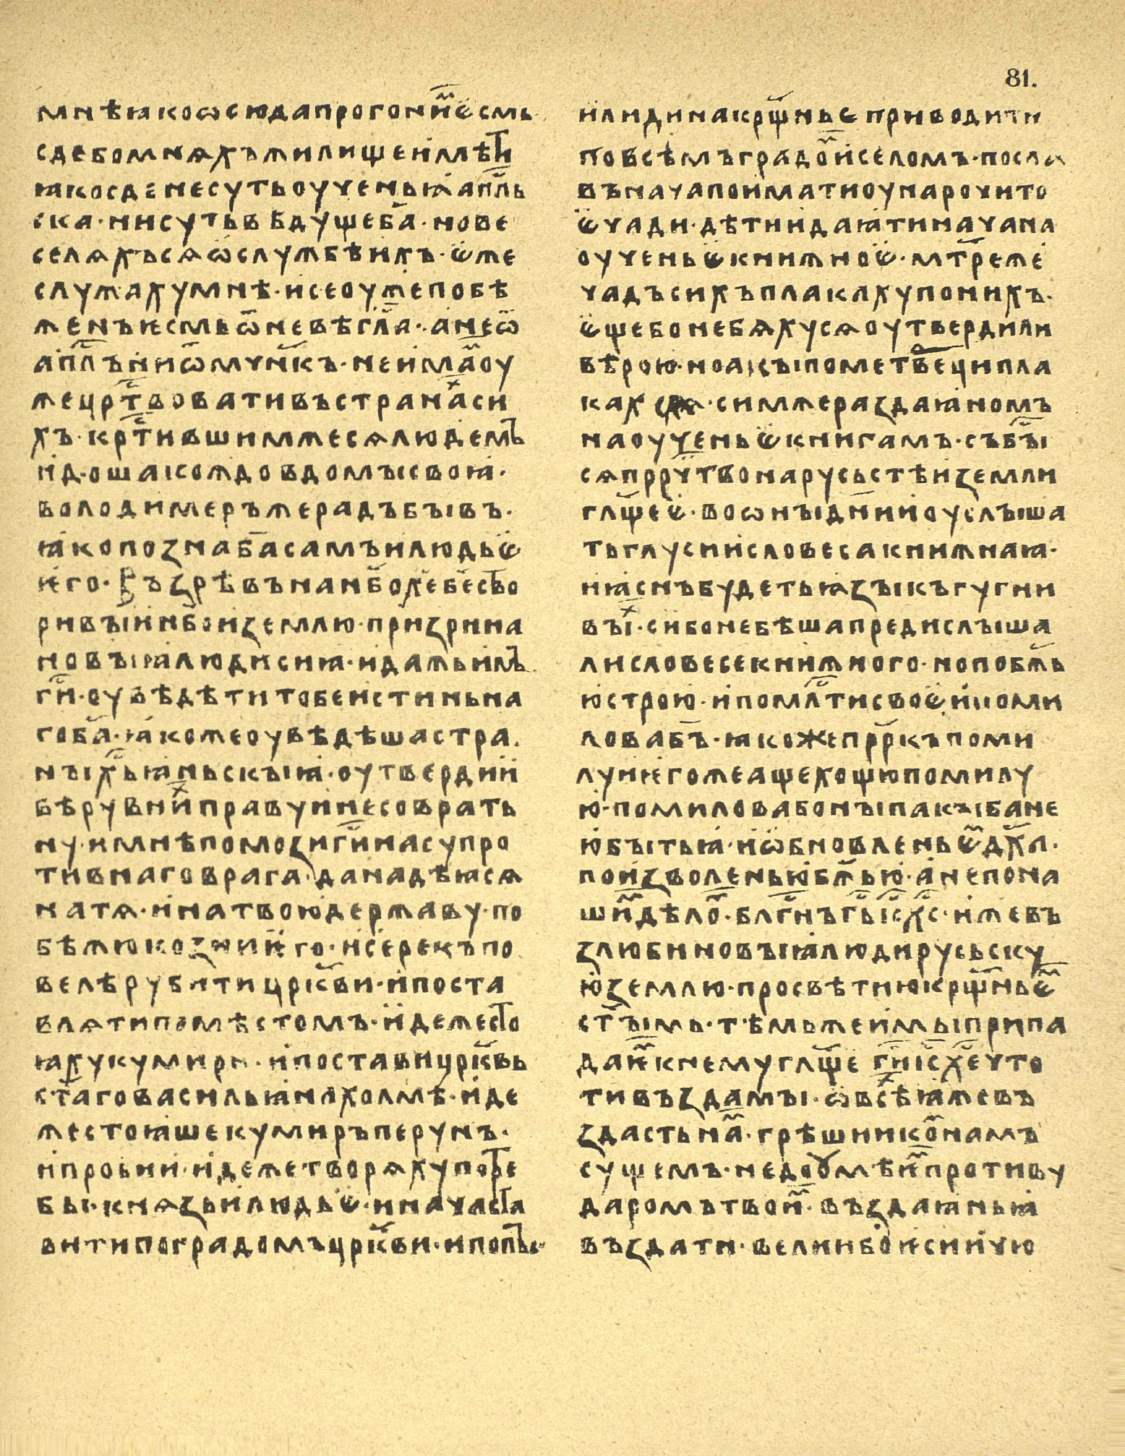 81.
мнѣꙗкоѡсюдапрогони́ⷨ ѥсмь
сдебомнѧхъжилищеимѣⷮи
ꙗкосдѣнесутьоученьꙗап҃ль
ска · нисутьвѣдущеб҃а · нове
селѧхъсѧѿслужбꙑихъ · ѥже
служахумнѣ · исеоужепобѣ
женъѥсмьѿневѣгл҃а · анеѿ
ап҃лъниѿмч҃нкъ · неимаⷨоу
жецрⷭ҇твовативъстранаⷯси
хъ · крⷭ҇тившимжесѧлюдемъ
идошакождовдомꙑсвоꙗ ·
володимеръжерадъбꙑвъ ·
ꙗкопознаб҃асамъилюдьѥ
ѥго · възрѣвънан҃бохеб҃есⷮво
ривꙑин҃боиземлю · призрина
новꙑꙗлюдисиꙗ · идажьимъ
гⷭ҇и · оувѣдѣтитобеистиньна
гоб҃а · ꙗкожеоувѣдѣшастра
нꙑхⷭ҇ьꙗньскꙑꙗ · оутвердии
вѣрувниⷯправуинесоврать
ну · имнѣпомозигⷭ҇инасупро
тивнаговрага · данадѣюсѧ
натѧ · инатвоюдержаву · по
бѣжюкозниѥго · исерекъпо
велѣрубитицрк҃ви · ипоста
влѧтипомѣстомъ · идежесⷮо
ꙗхукумири · ипоставицрк҃вь
ст҃аговасильꙗнахолмѣ · иде
жестоꙗшекумиръперунъ ·
ипрочии · идежетворѧхупоⷮре
бꙑ · кнѧзьилюдьѥ · иначасⷮа
витипоградомъцрк҃ви · ипопꙑ ·
илидинакрщ҃ньѥприводити
повсѣмъградоⷨиселомъ · посла
въначапоиматиоунарочито
ѥчади · дѣтиидаꙗтиначана
оученьѥкнижноѥ · мт҃режеⷬ
чадъсихъплакахупонихъ ·
ѥщебонебѧхусѧоутвердили
вѣрою · ноакꙑпомертвеципла
кахсѧ · симжераздаꙗномъ
наоученьѥкнигамъ · събꙑⷭ
сѧпррⷪчтвонарусьстѣиземли
гл҃щеѥ · воонꙑдн҃ииоуслꙑша
тьглусиисловесакнижнаꙗ ·
иꙗснъбудетьꙗзꙑкъгугни
вꙑⷯ · сибонебѣшапредислꙑша
лисловесекнижного · нопоб҃жь
юстрою · ипомлⷭ҇тисвоѥипоми
ловаб҃ъ · ꙗкожепрⷪркъпоми
луюѥгожеащехощюпомилу
ю · помиловабонꙑпакꙑбане
юбꙑтьꙗ · иѡбновленьѥⷨдх҃а ·
поизволеньюб҃жью · анепона
шиⷨдѣлоⷨ · блгⷭ҇нъгⷭ҇ьіс҃х҃с · ижевъ
злюбиновꙑꙗлюдирусьску
юземлю · просвѣтиюкрщ҃ньѥⷨ
ст҃ꙑмь · тѣмьжеимꙑприпа
даиⷨкнемугл҃ще гⷭ҇иіс҃хⷭ҇ечто
тивъздамꙑ · ѡвсѣⷯꙗжевъ
здастьнаⷨ · грѣшникоⷨнамъ
сущемъ · недоумѣиⷨпротиву
даромътвоиⷨ · въздаꙗньꙗ
въздати · велиибоѥсиичю